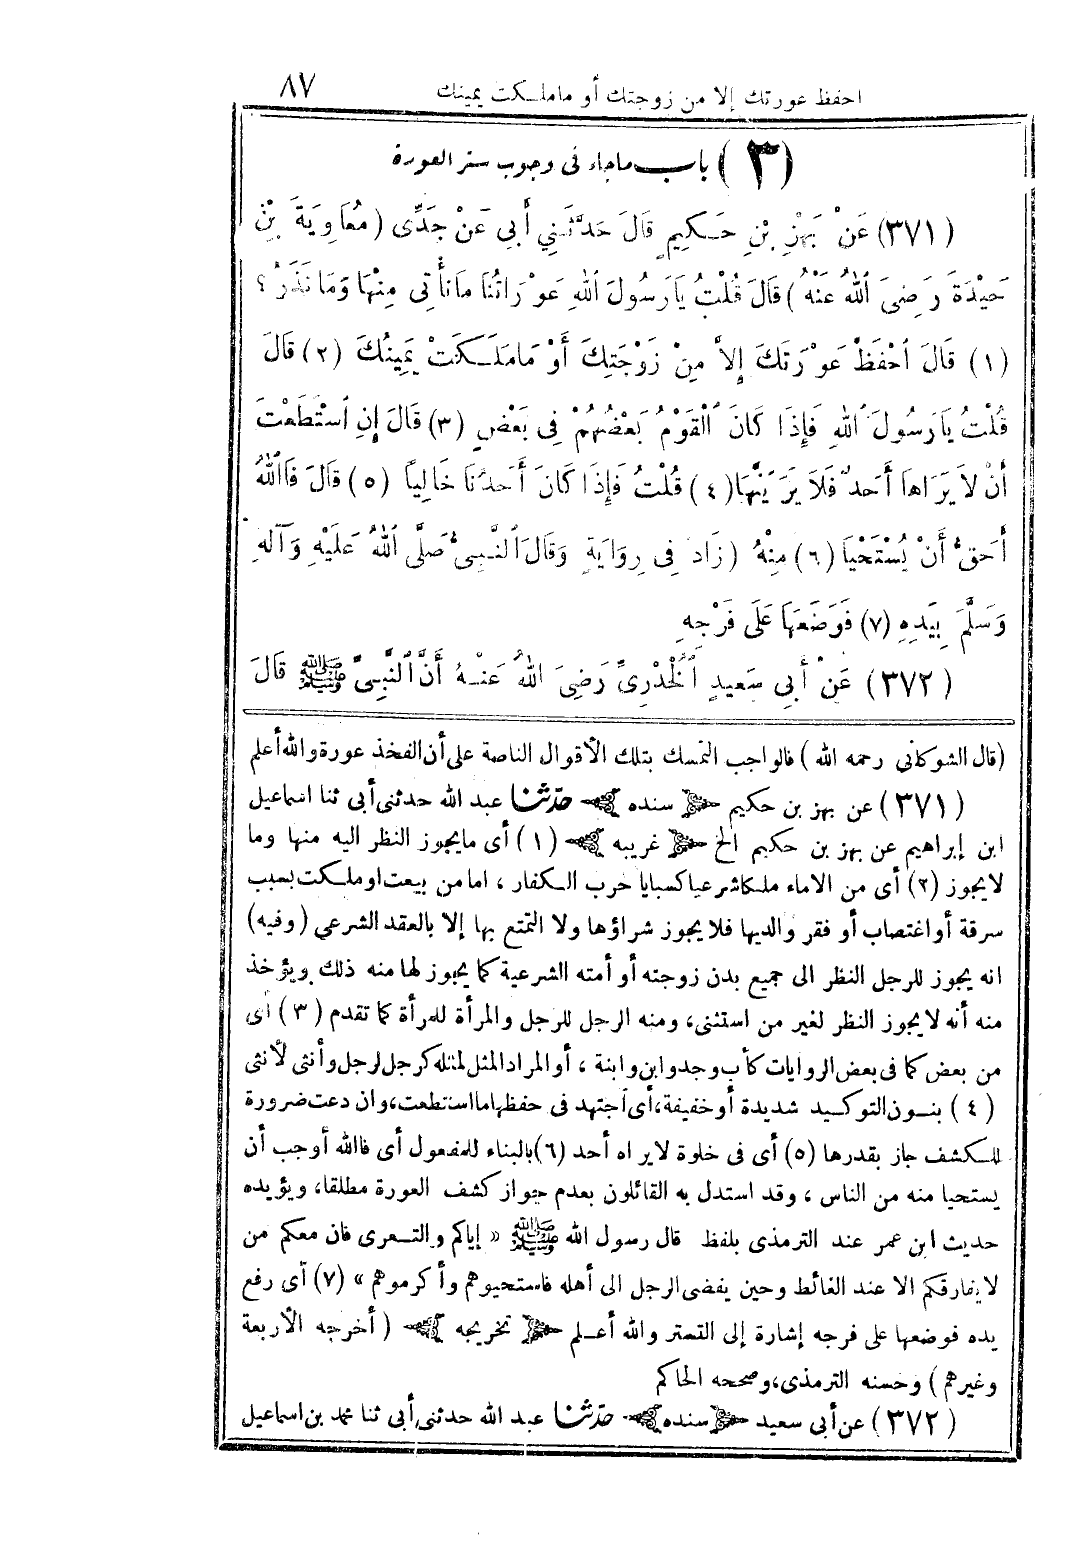 احفظ عورتك إلا من زوجتك أو ماملكت يمينك ٨٧
(٣) باب ماجاء فى وجوب ستر العورة
(٣٧١) عَنْ بَهْزِ بْنِ حَكِيمٍ قَالَ حَدَّثَنِي أَبِى عَنْ جَدِّى (مُعَاوِيَةَ بْنِ
حَيْدَةَ رَضِىَ اللهُ عَنْهُ) قَالَ قُلْتُ يَارَسُولَ اللهِ عَوْرَاتُنَا مَانَأْتِى مِنْهَا وَمَا نَذَرُ؟
(١) قَالَ احْفَظْ عَوْرَتَكَ إِلاَّ مِنْ زَوْجَتِكَ أَوْ مَامَلَكَتْ يَمِينُكَ (٢) قَالَ
قُلْتُ يَارَسُولَ اللهِ فَإِذَا كَانَ الْقَوْمُ بَعْضُهُمْ فِى بَعْضٍ (٣) قَالَ إِنِ اسْتَطَعْتَ
أَنْ لاَ يَرَاهَا أَحَدٌ فَلاَ يَرَيَنَّهَا (٤) قُلْتُ فَإِذَا كَانَ أَحَدُنَا خَالِياً (٥) قَالَ فَاللهُ
أَحَقُّ أَنْ يُسْتَحْيَا (٦) مِنْهُ (زَادَ فِى رِوَايَةٍ وَقَالَ النَّبِىُّ صَلَّى اللهُ عَلَيْهِ وَآلِهِ
وَسَلَّمَ بِيَدِهِ (٧) فَوَضَعَهَا عَلَى فَرْجِهِ
(٣٧٢) عَنْ أَبِى سَعِيدٍ الْخُدْرِىِّ رَضِىَ اللهُ عَنْهُ أَنَّ النَّبِىَّ ﷺ قَالَ
(قال الشوكانى رحمه الله) فالواجب التمسك بتلك الأقوال الناصة على أن الفخذ عورة والله أعلم
(٣٧١) عن بهز بن حكيم سنده حدثنا عبد الله حدثنى أبى ثنا اسماعيل
ابن إبراهيم عن بهز بن حكيم الخ غريبه (١) أى مايجوز النظر اليه منها وما
لايجوز (٢) أى من الاماء ملكا شرعيا كسبايا حرب الكفار، اما من بيعت او ملكت بسبب
سرقة أو اغتصاب أو فقر والديها فلا يجوز شراؤها ولا التمتع بها إلا بالعقد الشرعي (وفيه)
انه يجوز للرجل النظر الى جميع بدن زوجته أو أمته الشرعية كما يجوز لها منه ذلك ويؤخذ
منه أنه لايجوز النظر لغير من استثنى، ومنه الرجل للرجل والمرأة للمرأة كما تقدم (٣) أى
من بعض كما فى بعض الروايات كأب وجد وابن وابنة، أو المراد المثل لمثله كرجل لرجل وأنثى لأنثى
(٤) بنون التوكيد شديدة أو خفيفة، أى اجتهد فى حفظها ما استطعت، وان دعت ضرورة
للكشف جاز بقدرها (٥) أى فى خلوة لايراه أحد (٦) بالبناء للمفعول أى فالله أوجب أن
يستحيا منه من الناس، وقد استدل به القائلون بعدم جواز كشف العورة مطلقا، ويؤيده
حديث ابن عمر عند الترمذى بلفظ قال رسول الله ﷺ « إياكم والتعرى فان معكم من
لايفارقكم الا عند الغائط وحين يفضى الرجل الى أهله فاستحيوهم وأكرموهم » (٧) أى رفع
يده فوضعها على فرجه إشارة إلى التستر والله أعلم تخريجه (أخرجه الأربعة
وغيرهم) وحسنه الترمذى، وصححه الحاكم
(٣٧٢) عن أبى سعيد سنده حدثنا عبد الله حدثنى أبى ثنا محمد بن اسماعيل